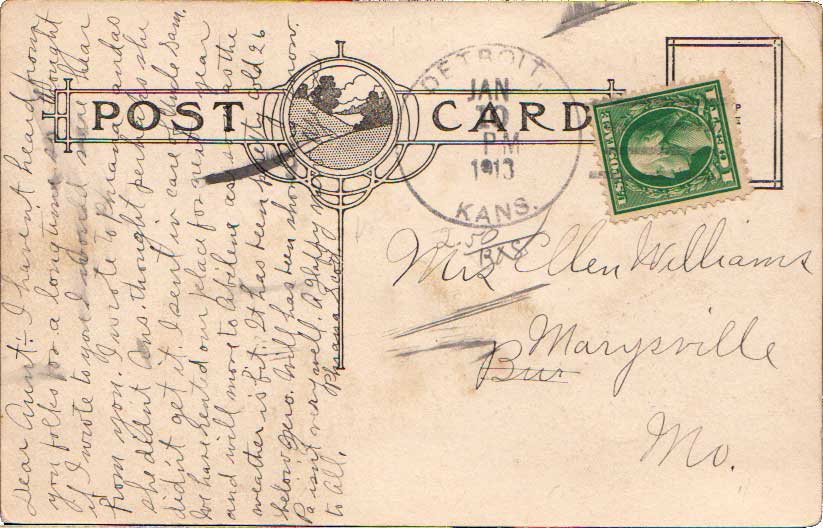 POST CARD
DETROIT,
JAN
PM
1913
KANS.
Mrs Ellen Williams
Marysville
Mo.
Dear Aunt:- I havent heard from
you folks for a long time & thought
if I wrote to you I would sure hear
from you. I wrote to and as
she didn't ans. thought perhaps she
didn't get it. I sent in care of Uncle Sam.
We have rented our place for next year
and will move to Abilene as soon as the
weather is fit. It has been pretty cold 26
below zero. Will has been now.
Pa isn't very well. A Happy
to all.